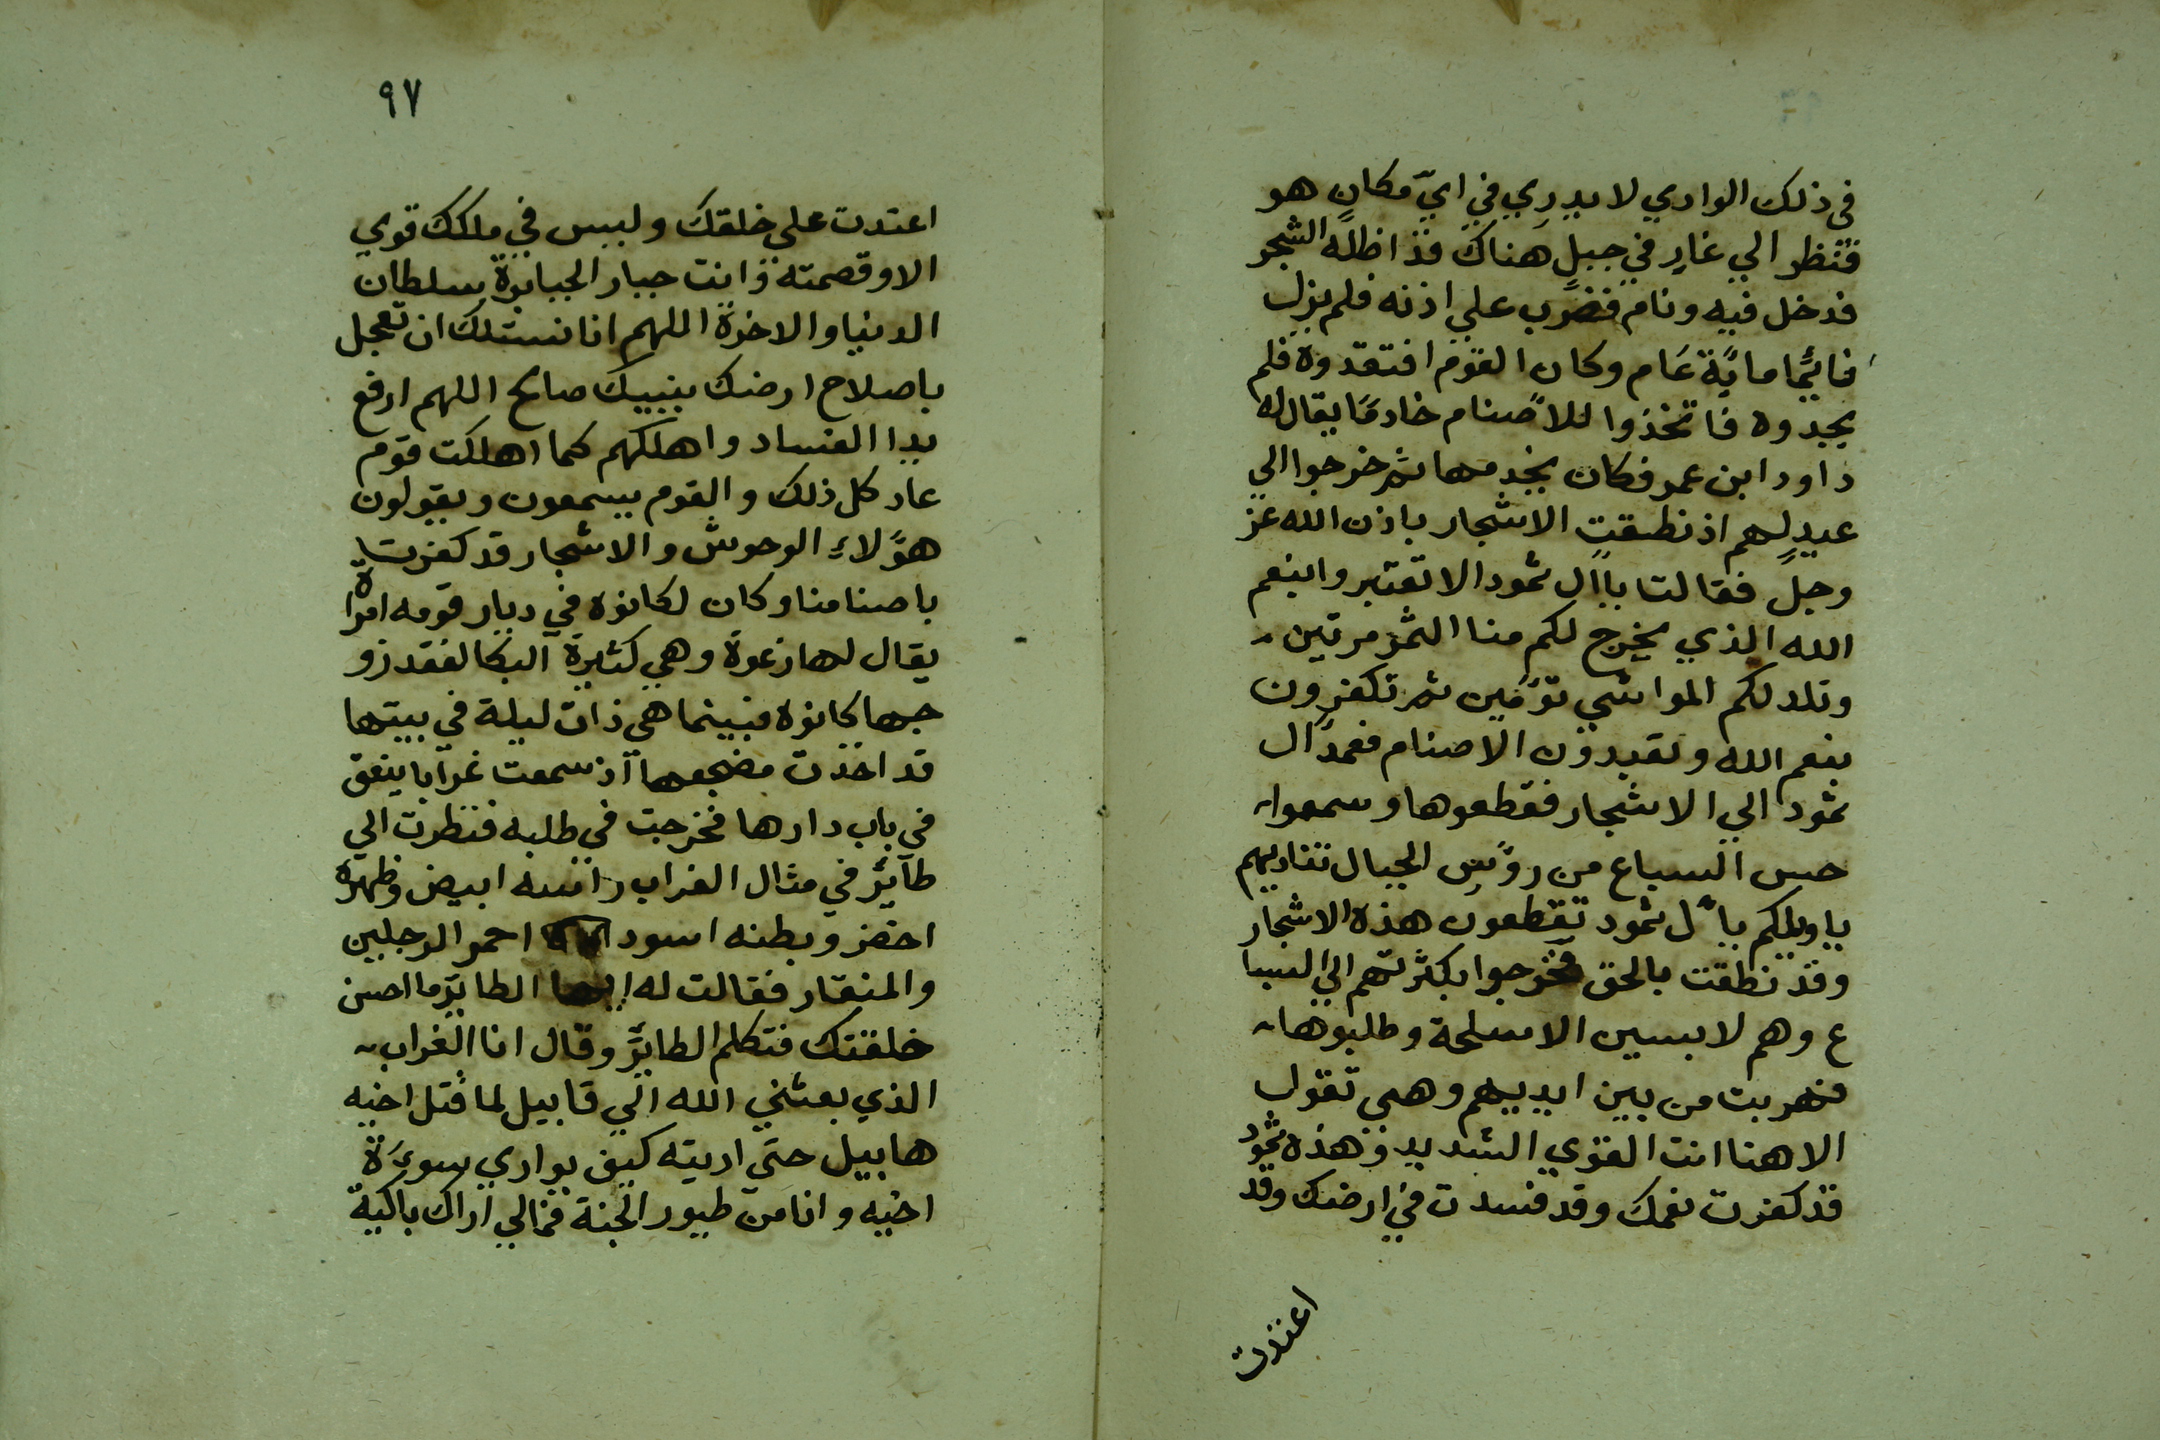 في ذلك الوادي لا يدري في ايّ مكان هو
فنظر الي غار في جبل هناك قد اظله الشجر
فدخل فيه ونام فضرب علي اذنه فلم يزل
نائما ماية عام وكان القوم افتقدوه فلم
يجدوه فاتخذوا للاصنام خادمًا يقال له
داود ابن عمر فكان يخدمها ثم خرجوا الي
عيد لهم اذ نطقت الاشجار باذن الله عز
وجل فقالت ياآل ثمود الا تعتبروا بنعم
الله الذي يخرج لكم منا الثمر مرتين
وتلد لكم المواشي تؤمين ثم تكفرون
بنعم الله وتعبدون الاصنام فعمد آل
ثمود الي الاشجار فقطعوها وسمعوا
حس السباع من رؤس الجبال تناديهم
ياويلكم يآل ثمود تقطعون هذه الاشجار
وقد نطقت بالحق فخرجوا بكثرتهم الي السبا
ع وهم لابسين الاسلحة وطلبوها
فهربت من بين ايديهم وهي تقول
الاهنا انت القوي الشديد وهذه ثمود
قد كفرت نعمك وقد فسدت في ارضك وقد
اعتدت
٩٧
اعتدت علي خلقك وليس في ملكك قوي
الا وقصمته وانت جبار الجبابرة سلطان
الدنيا والاخرة اللهم انا نسئلك ان تعجل
باصلاح ارضك بنبيك صالح اللهم ارفع
يدا الفساد واهلكهم كما اهلكت قوم
عاد كل ذلك والقوم يسمعون ويقولون
هؤلاء الوحوش والاشجار قد كفرت
باصنامنا وكان لكانوه في ديار قومه امراة
يقال لها رعوة وهي كثيرة البكا لفقد زو
جها كانوه فبينما هي ذات ليلة في بيتها
قد اخذت مضجعها اذ سمعت غرابا ينعق
في باب دارها فخرجت في طلبه فنظرت الي
طائر في مثال الغراب راسه ابيض وظهره
اخضر وبطنه اسود احمر الرجلين
والمنقار فقالت له ايها الطاير ما احسن
خلقتك فتكلم الطاير وقال انا الغراب
الذي بعثني الله الي قابيل لما قتل اخيه
هابيل حتي اريته كيف يواري سوءة
اخيه وانا من طيور الجنة فمالي اراك باكية